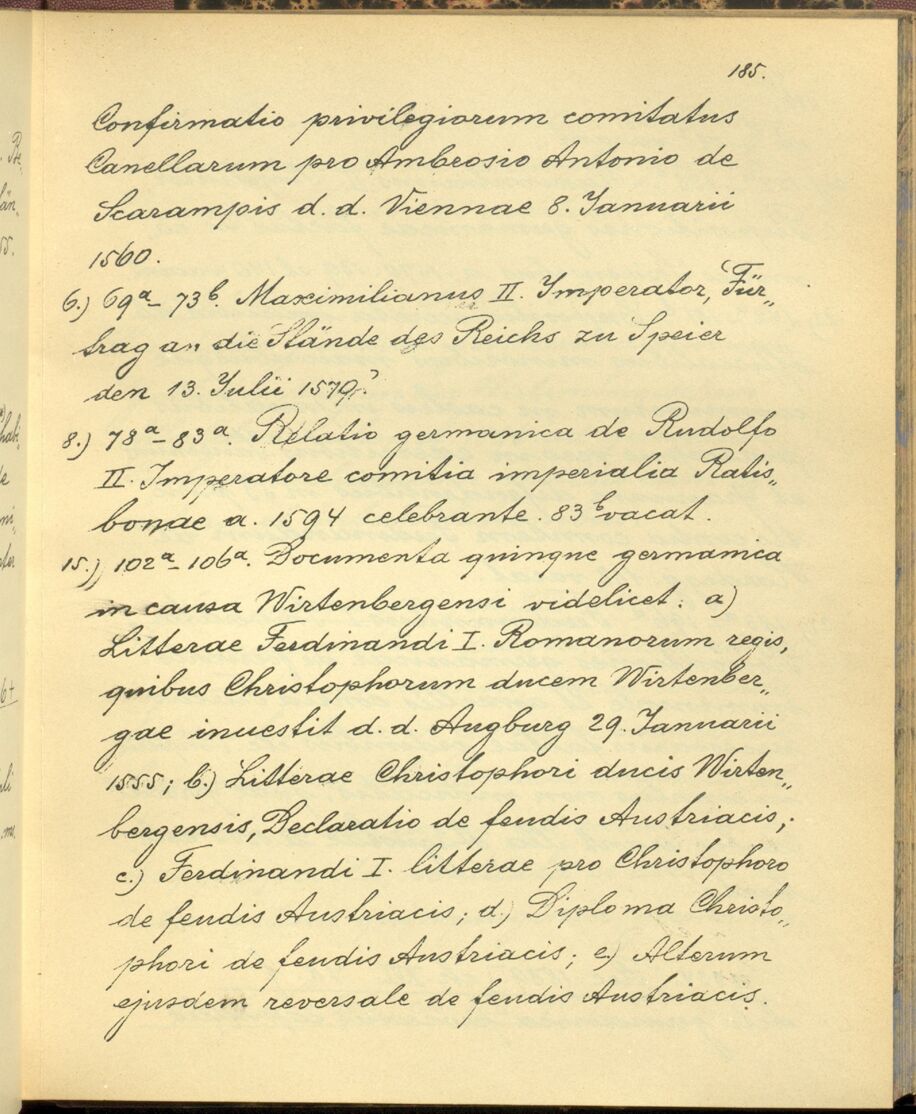 185.
Confirmatio privilegiorum comitatus
Canellarum pro Ambrosio Antonio de
Scarampis d. d. Viennae 8. Ianuarii
1560.
6.) 69a– 73b. Maximilianus II. Imperator, Für„
trag an die Stände des Reichs zu Speier
den 13. Iulii 1570.?
8.) 78a– 83a. Relatio germanica de Rudolfo
II. Imperatore comitia imperialia Ratis„
bonae a. 1594 celebrante. 83b vacat.
15.) 102a– 106a. Documenta quinque germanica
in causa Wirtenbergensi videlicet: a)
Litterae Ferdinandi I. Romanorum regis,
quibus Christophorum ducem Wirtenber„
gae inuestit d. d. Augburg 29. Ianuarii
1555; b.) Litterae Christophori ducis Wirten„
bergensis, Declaratio de feudis Austriacis;
c.) Ferdinandi I. litterae pro Christophoro
de feudis Austriacis; d.) Diploma Christo„
phori de feudis Austriacis; e.) Alterum
ejusdem reversale de feudis Austriacis.